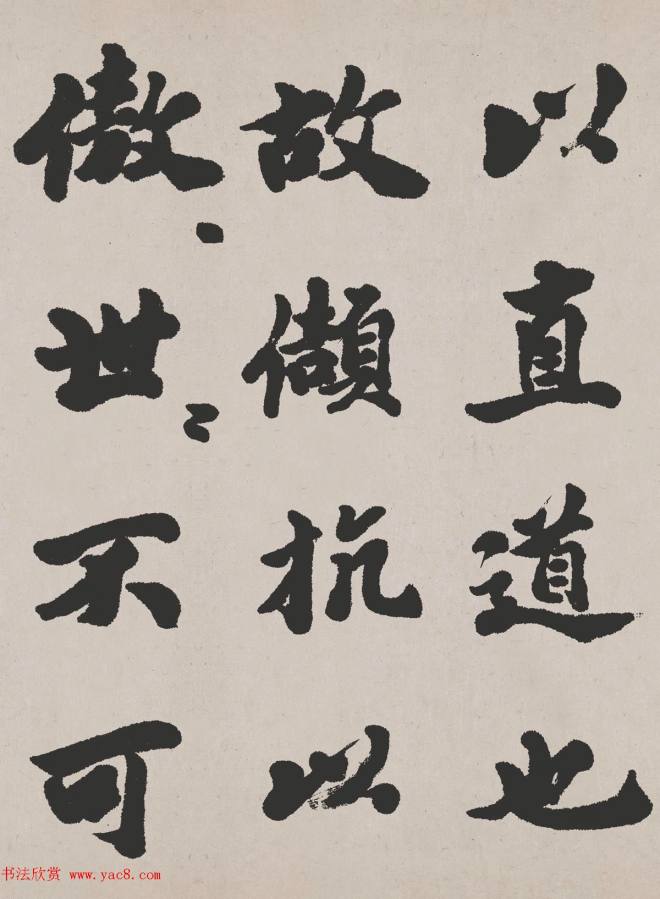 以直道也
故㒓抗以
傲、世〻不可
书法欣赏 www.yac8.com